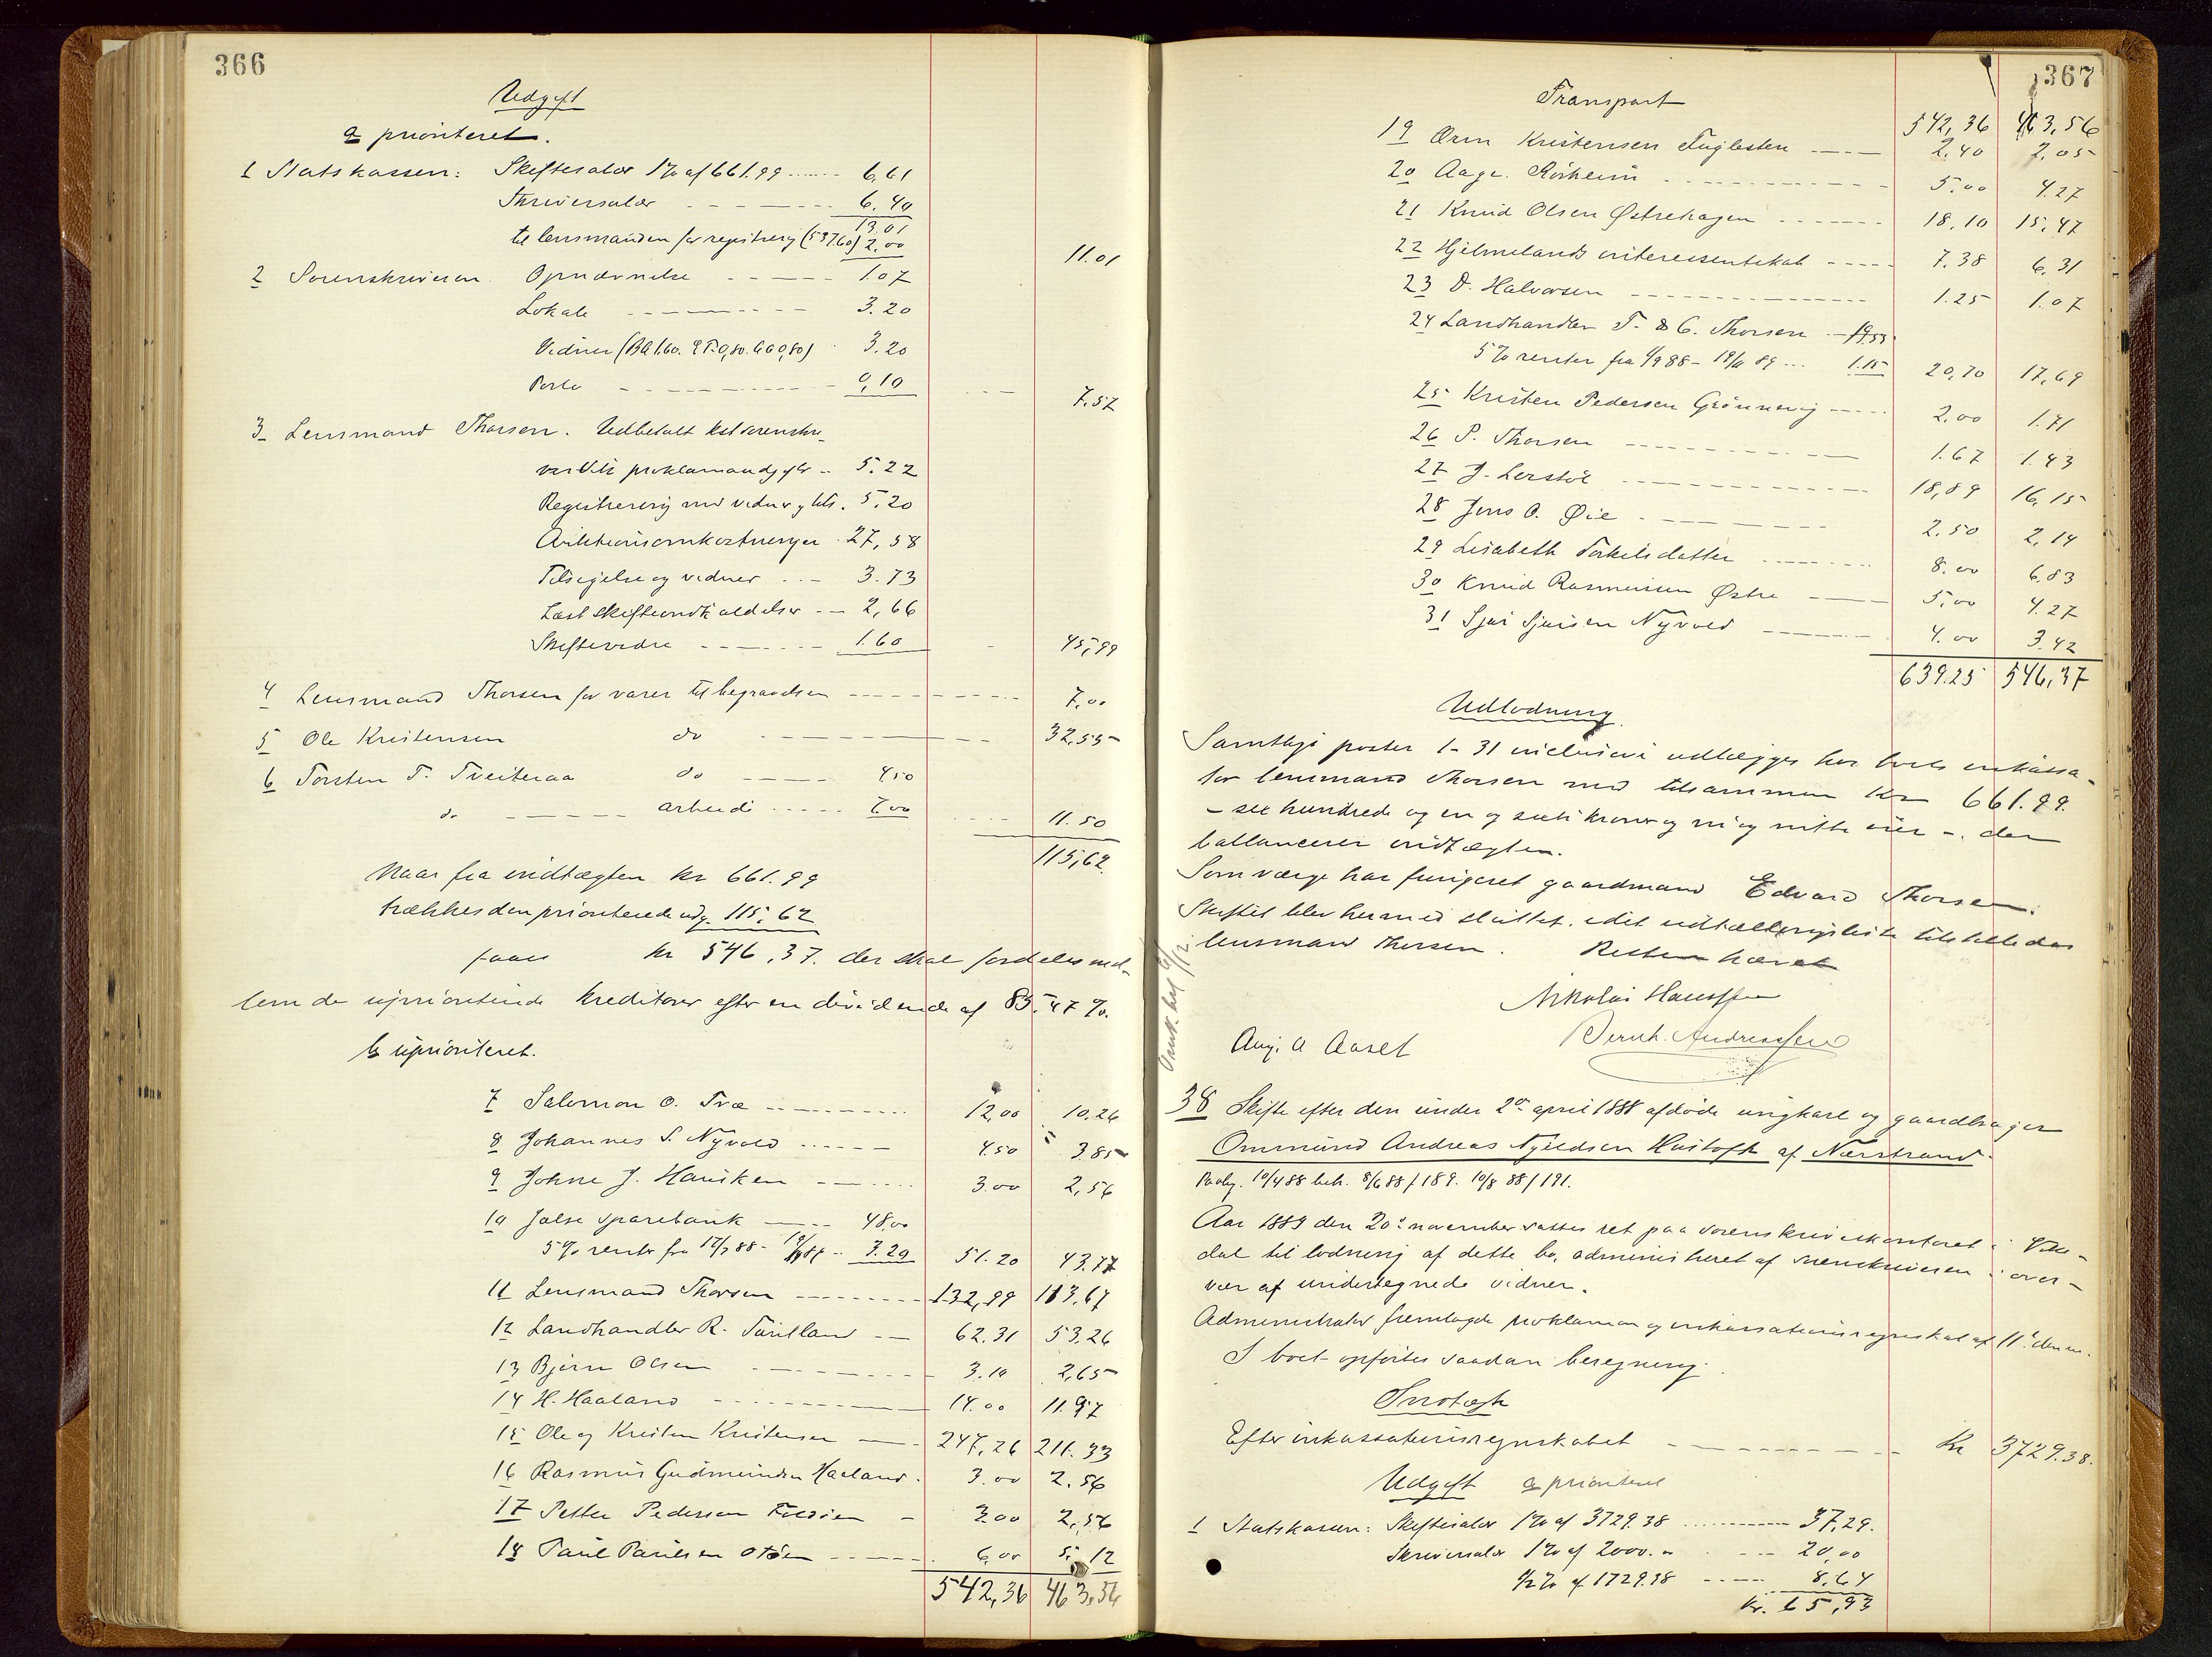 366
Udgift
a prioriteret.
1 Statskassen: Skiftesalær 1% af 661.99 ...... 6,61
Skriversalær - - - - 6.40
13.01
til lensmanden for registrerg (537.60) 2.00 11.01
2 Sorenskriveren. Opnævnelse - - - - 1.07
Lokale - - - - 3.20
Vidner (BA 1.60. 0,80. 0,80) 3.20
Porto - - - - 0,10 7.57
3 Lensmand Thorsen. Udbetalt til sorenskri-
veren proklamaudgifter .. 5.22
Registrering med vidner 5.20
Auktionsomkostninger 27,58
Tilsigelse og vidner ... 3.73
Læst skifteindkaldelser -- 2,66
Skiftevidne - - - - 1.60 45,99
4 Lensmand Thorsen for varer til begravelsen - - - - 7,00
5 Ole Kristensen do - - - - 32,55
6 Torsten T. Tveiteraa do - - - - 4.50
do - - - - arbeide ..... 7.00 11.50
115,62
Naar fra indtægten kr 661.99
trækkes den prioriterede udg. 115,62
faaes kr 546,37. der skal fordeles mel-
lem de uprioriterede kreditorer efter en dividende af 85,47 %.
b uprioriteret.
7 Salomon O. Træ - - - - 12,00 10,26
8 Johannes S. Nyvold - - - - 4.50 3.85
9 Johne J. Hauske n - - - - 3.00 2,56
10 Jælse sparebank - - 48,00
5% renter fra 12/7 88 - 3.20 51.20 43.77
11 Lensmand Thorsen - - - - 132,99 113,67
12 Landhandler R. - - 62.31 53,26
13 Bjørn Olsen - - - - 3.10 2,65
14 H. Haaland - - - - 14.00 11.97
15 Ole og Kristen Kristensen - - 247,26 211.33
16 Rasmus Gudmundsen Haaland. 3.00 2.56
17 Petter Pedersen - 3.00 2,56
18 Paul Paulsen - - - - 6,00 5,12
542,36 463,56
367
Transport 542,36 463,56
19 Orm Kristensen Fuglesten - - - 2,40 2,05
20 Aage Rörheim - - - - 5.00 4.27
21 Knud Olsen Østrehagen - - - - 18,10 15,47
22 Hjelmelands interessentskab - - - 7.38 6,31
23 O. Halvorsen - - - - 1.25 1.07
24 Landhandler T. & C. Thorsen - 19.55
5% renter fra 4/9 88 - 19/11 89 ... 1.15 20,70 17,69
25 Kristen Pedersen Grönnevig - - - 2,00 1.71
26 P. Thorsen - - - - 1.67 1.43
27 J. Lerstöl - - - - 18,89 16,15
28 Jens O. Øie - - - - 2.50 2,14
29 Lisabeth Torkelsdatter - - - - 8.00 6,83
30 Knud Rasmussen Østre - - - 5,00 4.27
31 Sjur Sjursen Nyvold - - - - 4.00 3.42
639.25 546,37
Udlodning.
Samtlige poster 1-31 inclusive udlægges hos boets inkassa-
tor lensmand Thorsen med tilsammen kr 661.99.
- sex hundrede og en og seksti kroner og ni og nitti öre -. der
ballancerer indtægten.
Som værge har fungeret gaardmand Edvard Thorsen.
Skiftet blev hermed sluttet, idet udtællingsliste tilstilledes
lensmand Thorsen. Retten hævet
Nikolai Hanssen
Aug. A Aaset Bernh. Andreassen
38 Skifte efter den under 2den april 1888 afdöde ungkarl og gaardbruger
Ommund Andreas Hustoft af Nærstrand.
10/4 88 beh. 8/6 88 / 189. 10/8 88 / 191.
Aar 1889 den 20de november sattes ret paa sorenskriverkontoret i Vike-
dal til lodning af dette bo, administreret af sorenskriveren i over-
vær af undertegnede vidner.
Administrator fremlagde proklama og inkassationsregnskab af 11te ds.
I boet opförtes saadan beregning.
Indtægt
Efter inkassationsregnskabet - - - - Kr 3729.38.
Udgift a prioriteret
1 Statskassen: Skiftesalær 1% af 3729.38 - - - - 37,29.
Skriversalær 1% af 2000.- - - 20,00
1/2 % af 1729.38 - - - 8,64
Kr. 65,93